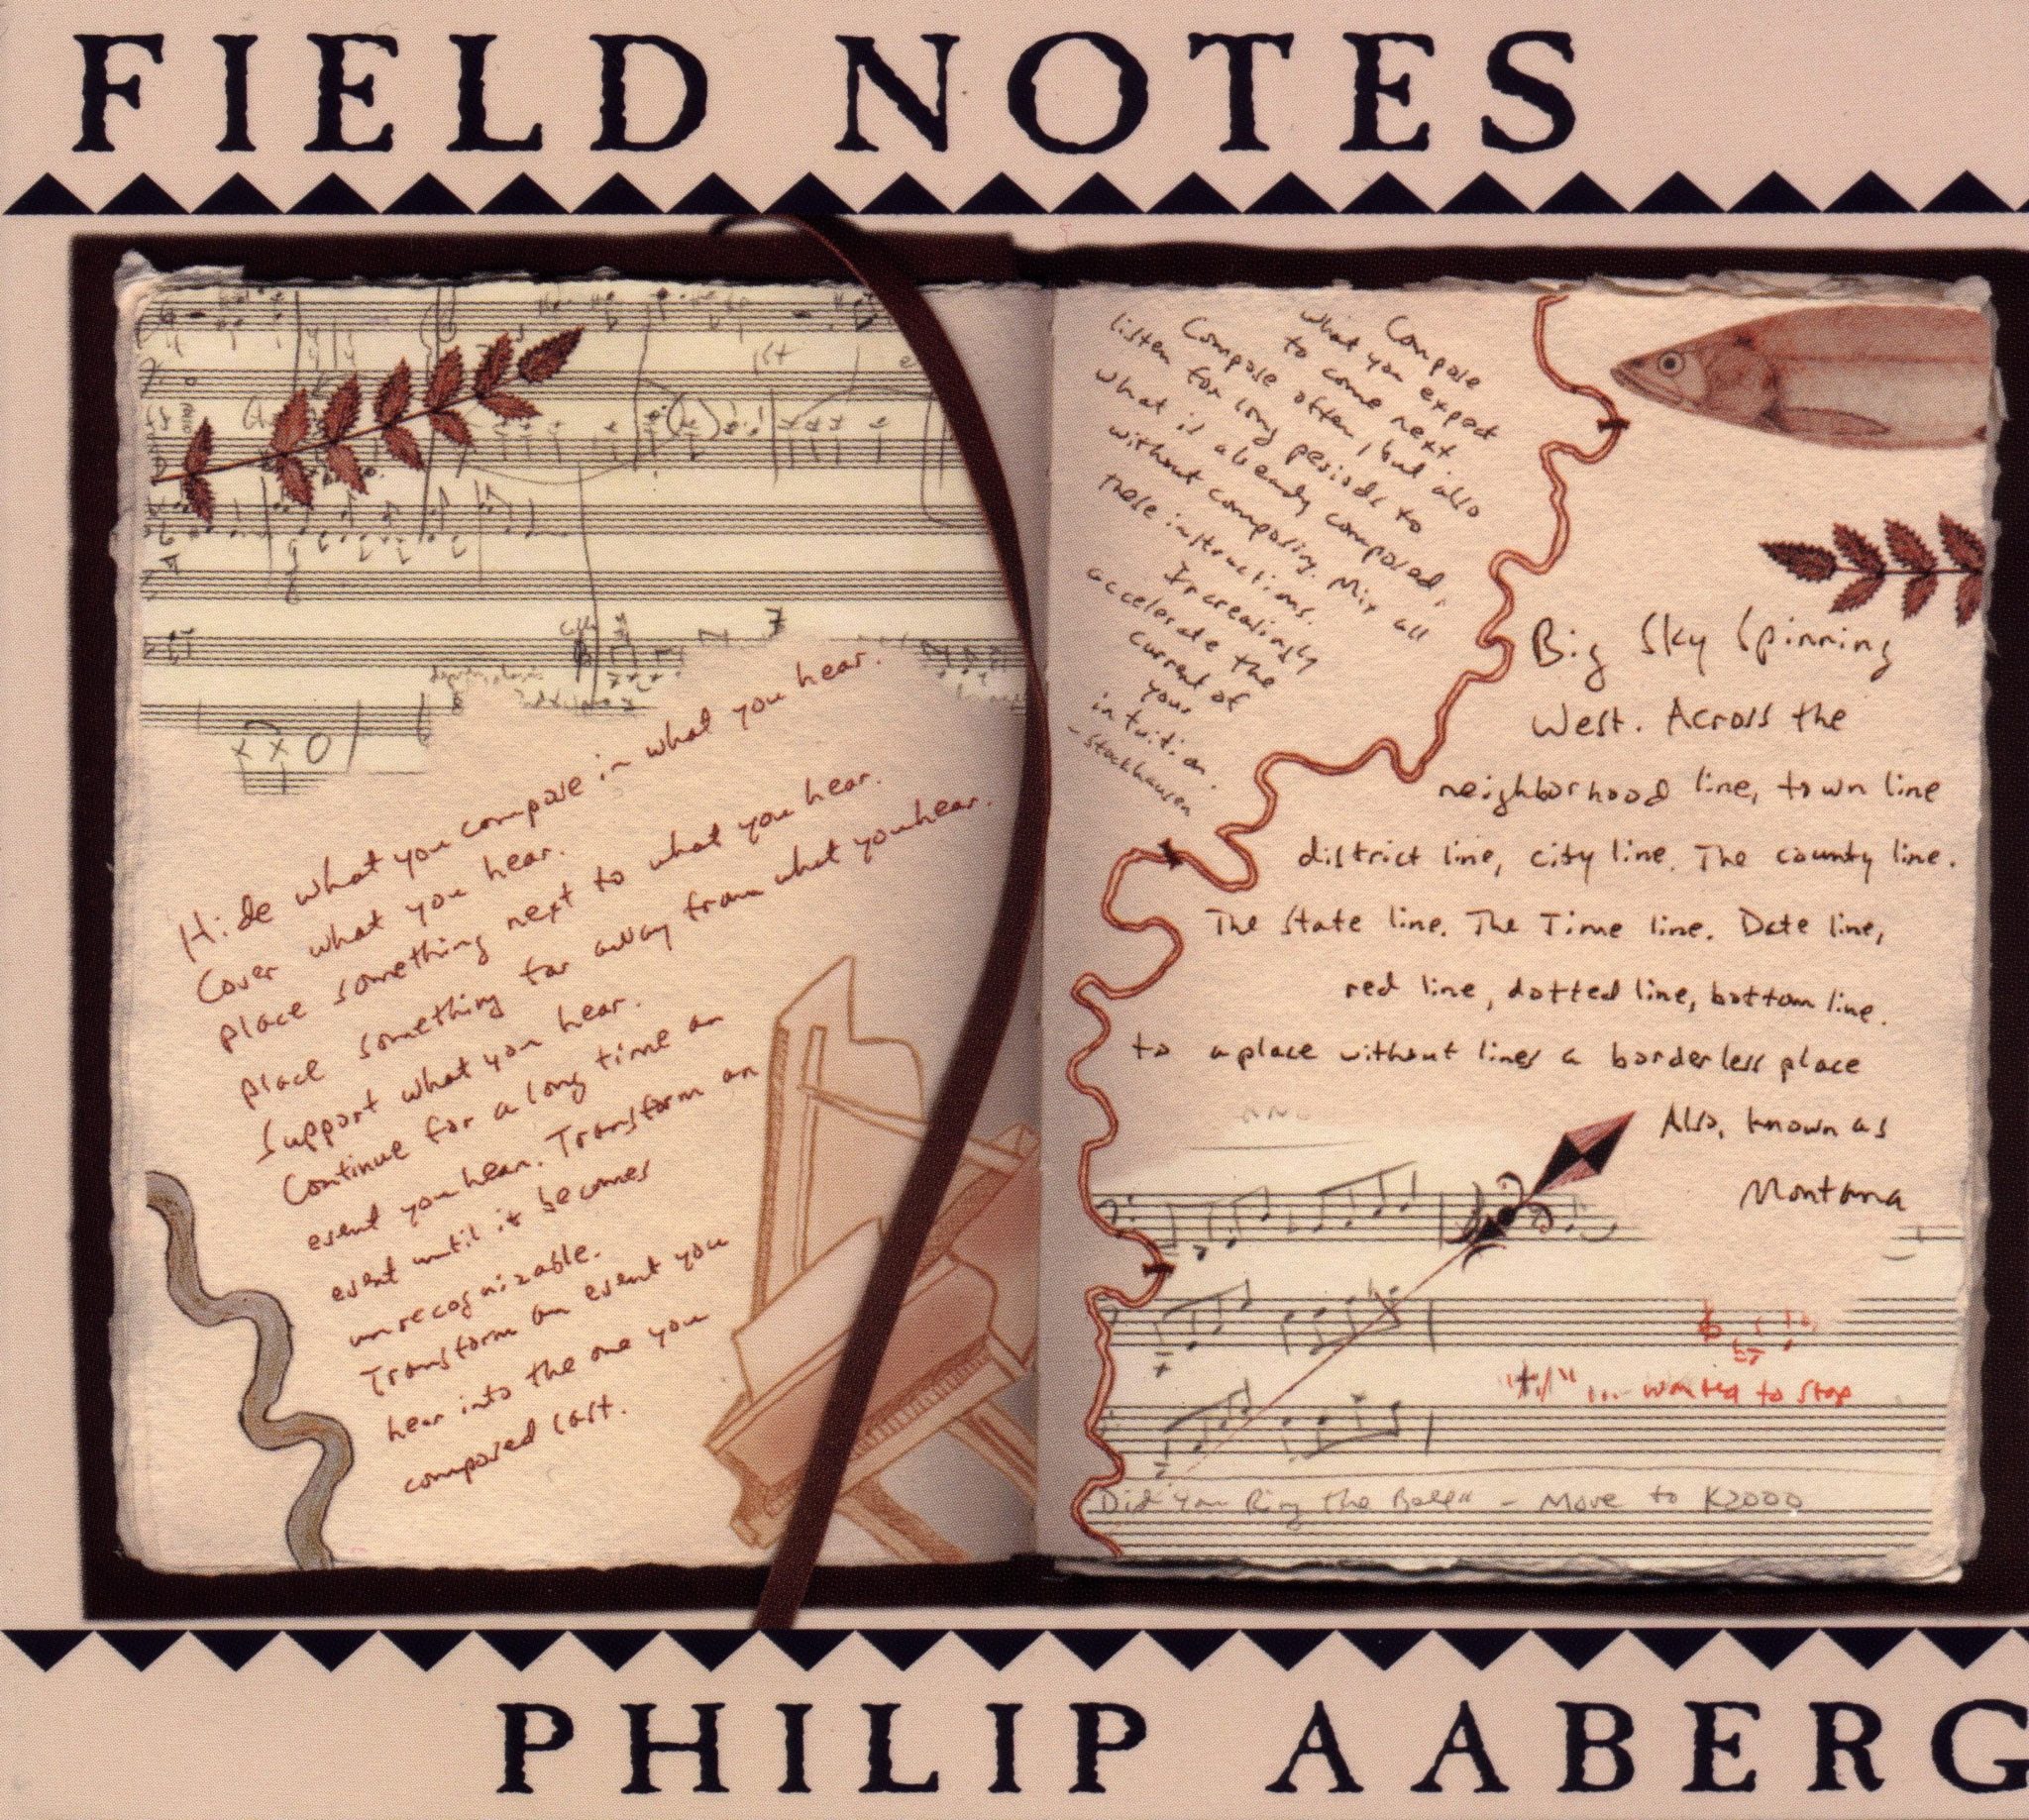 FIELD NOTES
Hide what you compose in what you hear.
Cover what you hear.
Place something next to what you hear.
Place something far away from what you hear.
Support what you hear.
Continue for a long time an
event you hear. Transform an
event until it becomes
unrecognizable.
Transform an event you
hear into the one you
composed last.
Compose
what you expect
to come next
Compose often, but also
listen for long periods to
what is already composed,
without composing. Mix all
these instructions.
Increasingly
accelerate the
current of
your
intuition.
- Stockhausen
Big Sky Spinning
West. Across the
neighborhood line, town line
district line, city line. The county line.
The State line. The Time line. Date line,
red line, dotted line, bottom line.
to a place without lines a borderless place
Also, known as
Montana
... wanted to stop
Did You Ring the - Move to K2000
PHILIP AABERG